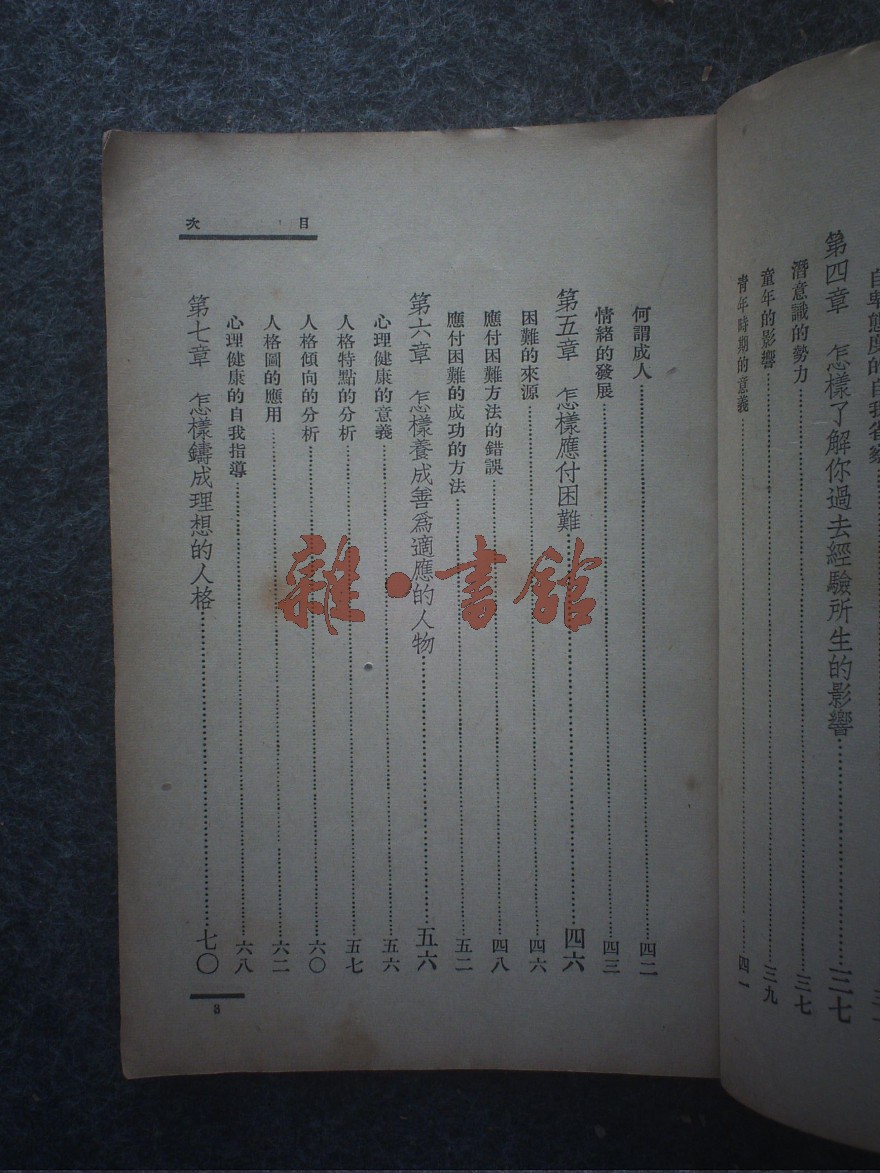 自卑態度的自我省察
第四章　怎樣了解你過去經驗所生的影響……三七
潛意識的勢力……三七
童年的影響……三九
青年時期的意義……四一
目次
何謂成人……四二
情緒的發展……四三
第五章　怎樣應付困難……四六
困難的來源……四六
應付困難方法的錯誤……四八
應付困難的成功的方法……五二
第六章　怎樣養成善爲適應的人物……五六
心理健康的意義……五六
人格特點的分析……五七
人格傾向的分析……六〇
人格圖的應用……六二
心理健康的自我指導……六八
第七章　怎樣鑄成理想的人格……七〇
3
雜·書館